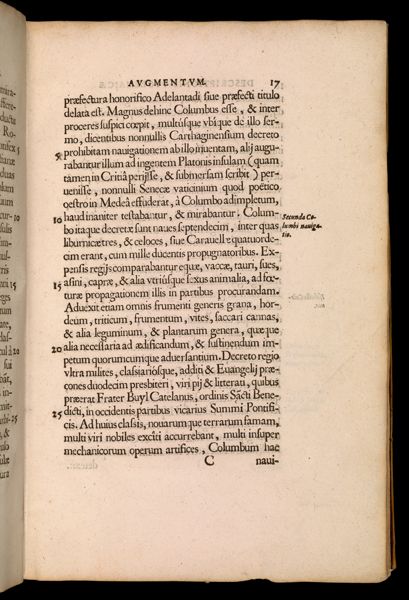 AVGMENTVM. 17
præfectura honorifico Adelantadi siue præfecti titulo
delata est. Magnus dehinc Columbus esse, & inter
proceres suspici cœpit, multúsque vbíque de illo ser-
mo, dicentibus nonnullis Carthaginensium decreto
5 prohibitam nauigationem ab illo inuentam, alij augu-
rabantur illum ad ingentem Platonis insulam (quam
tamen in Critiâ perijsse, & submersam scribit) per-
uenisse, nonnulli Senecæ vaticinium quod poëtico
oestro in Medeâ effuderat, à Columbo adimpletum,
10 haud inaniter testabantur, & mirabantur. Colum-
bo itaque decretæ sunt naues septendecim, inter quas
liburnicæ tres, & celoces, siue Carauellæ quatuorde-
cim erant, cum mille ducentis propugnatoribus. Ex-
pensis regijs comparabantur equæ, vaccæ, tauri, sues,
15 asini, capræ, & alia vtriúsque sexus animalia, ad fœ-
turæ propagationem illis in partibus procurandam.
Aduexit etiam omnis frumenti generis grana, hor-
deum, triticum, frumentum, vites, saccari cannas,
& alia leguminum, & plantarum genera, quæque
20 alia necessaria ad ædificandum, & sustinendum im-
petum quorumcumque aduersantium. Decreto regio
vltra milites, classiariósque, additi & Euangelij præ-
cones duodecim presbiteri, viri pij & litterati, quibus
præerat Frater Buyl Catelanus, ordinis Sãcti Bene-
25 dicti, in occidentis partibus vicarius Summi Pontifi-
cis. Ad huius classis, nouarumque terrarum famam,
multi viri nobiles exciti accurrebant, multi insuper
mechanicorum operum artifices, Columbum hac
C naui-
Secunda Co-
lumbi nauiga-
tio.